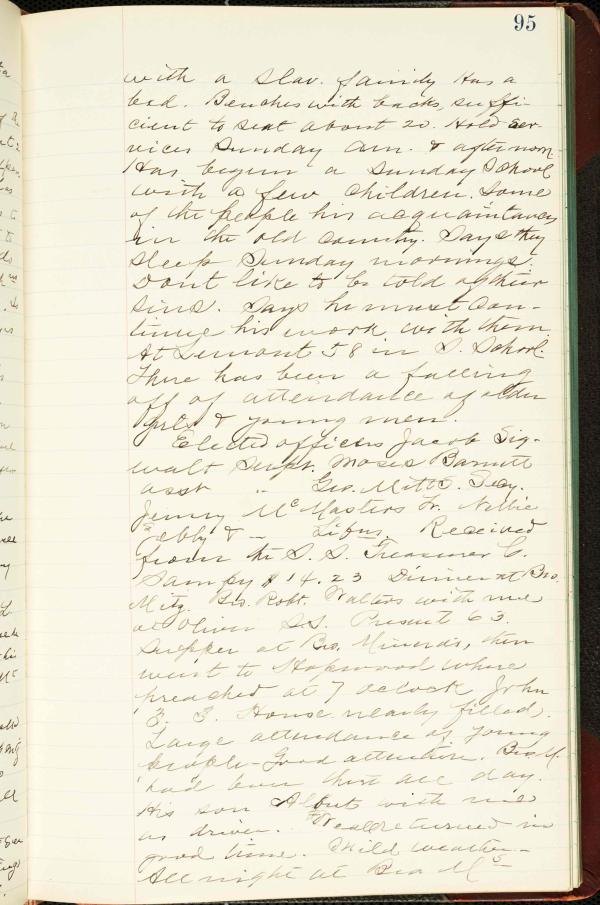 95
with a Slav. family Has a
bed. Benches with backs, suffi-
cient to seat about 20. Hold Ser-
vices Sunday am. & afternoon.
Has begun a Sunday School
with a few children. Some
of the people his acquaintances
in the old country. Says they
sleep Sunday mornings.
Dont like to be told of their
sins. Says he must con-
tinue his work with them.
At Lemont 58 in S. School.
There has been a falling
off of attendance of older
girls & young men.
Elected officers Jacob Sig-
walt Supt. Moses Barnett
asst " Geo. Mitts. Secy.
Jenny McMasters Tr. Nellie
& Libns. Received
from the S. S. Treasurer C.
$14.23 Dinner at Bro.
Bro. Robt. Walters with me
at Oliver SS. Present 63.
Supper at Bro. Minerds, then
went to Hopwood where
preached at 7 oclock John
3. 3. House nearly filled.
Large attendance of young
people - Good attention. Bro M.
had been there all day.
His son Albert with me
as driver. We all returned in
good time. Mild weather -
All night at Bro Ms